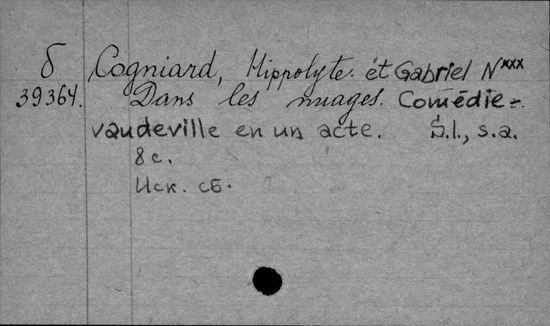 б Cogniard, Hippolyte. et Gabriel N***
39364. Dans les nuages. Comédie-
vaudeville en un acte. S.l., s.a.
8 с.
Иск. сб.